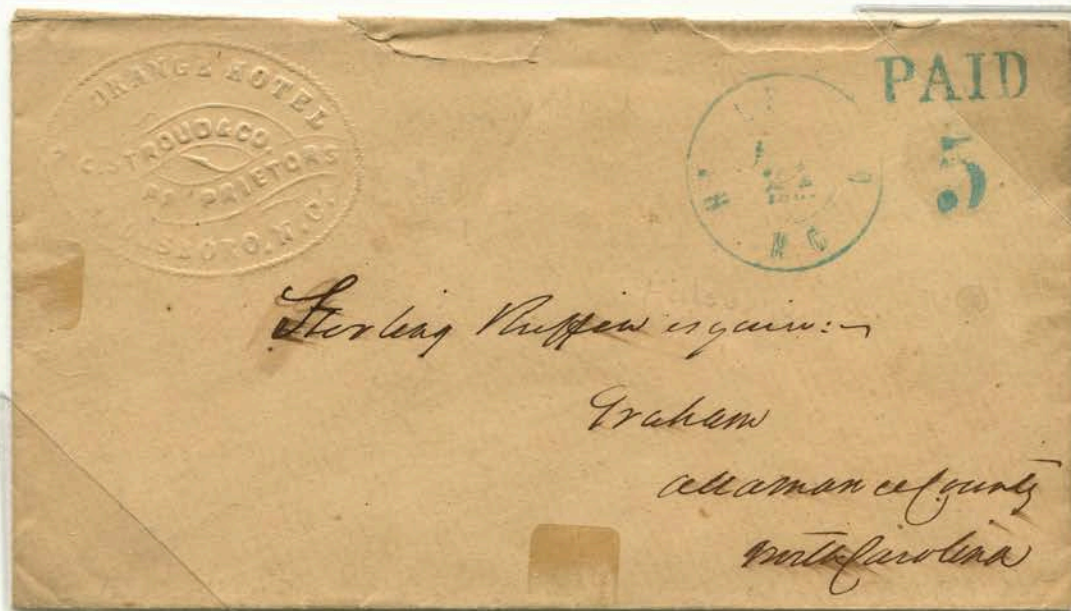 ORANGE HOTEL
C. STROUD & CO.
PROPRIETORS
N.C.
PAID
5
N C
Sterling Ruffin esquire:
Graham
Alamance County
North Carolina